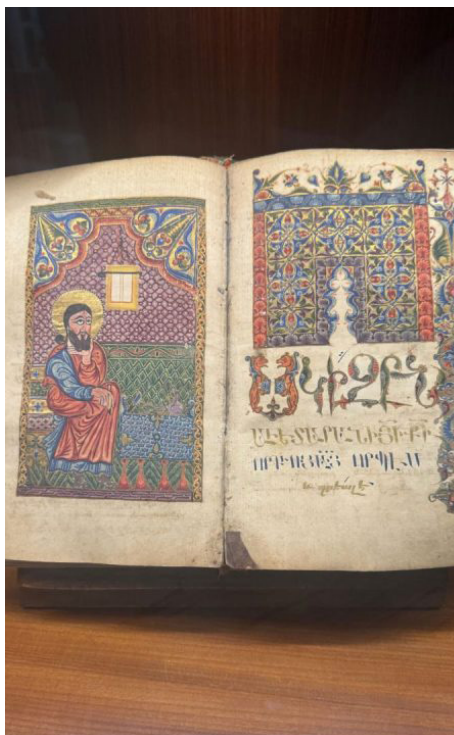 ՍԿԻԶԲՆ
ԱՒԵՏԱՐԱՆԻ ՅԻ ՔԻ
ՈՐԴՒՈՅ ԱՅ ՈՐՊԷՍ
եւ գրեալ է